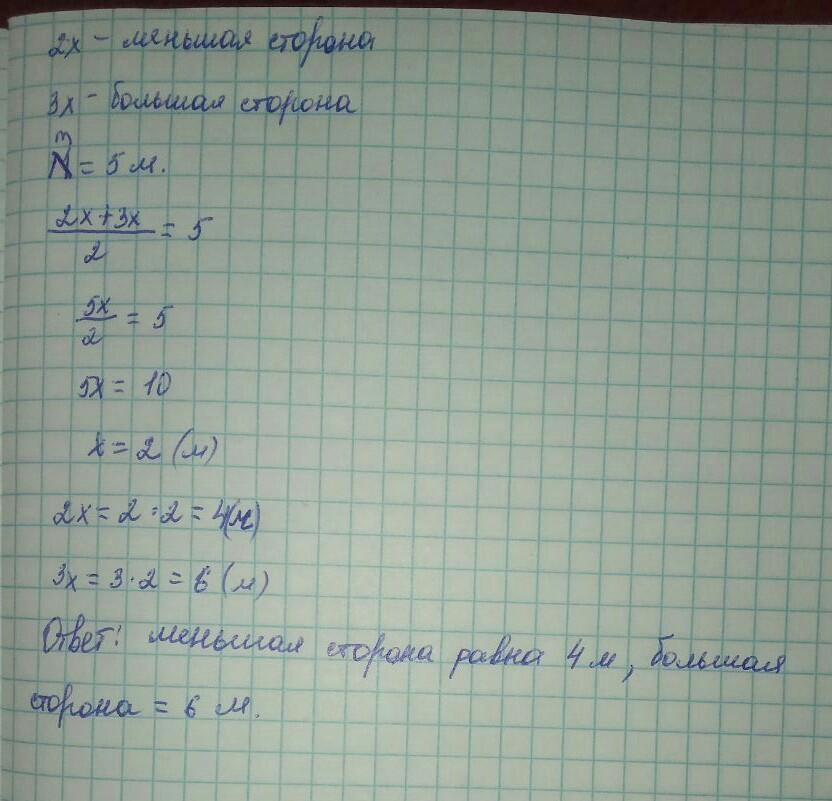 2x - меньшая сторона
3x - большая сторона
m = 5 м.
2x+3x
2
= 5
5x
2
= 5
5x = 10
x = 2 (м)
2x = 2 · 2 = 4(м)
3x = 3 · 2 = 6 (м)
Ответ: меньшая сторона равна 4 м, большая
сторона = 6 м.